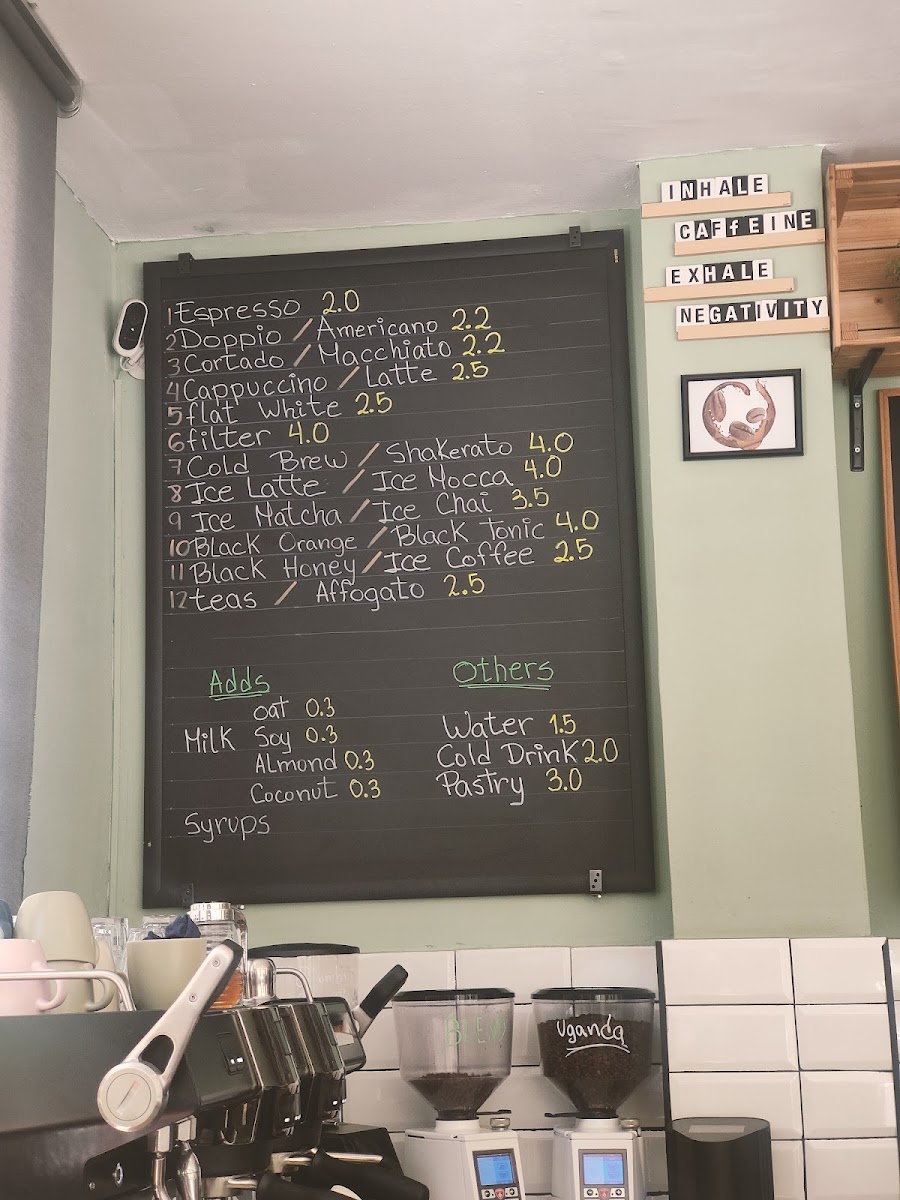 INHALE
CAFfEINE
EXHALE
NEGATIVITY
1 Espresso 2.0
2 Doppio / Americano 2.2
3 Cortado / Macchiato 2.2
4 Cappuccino / Latte 2.5
5 flat white 2.5
6 filter 4.0
7 Cold Brew / Shakerato 4.0
8 Ice Latte / Ice Mocca 4.0
9 Ice Matcha / Ice Chai 3.5
10 Black Orange / Black Tonic 4.0
11 Black Honey / Ice Coffee 2.5
12 teas / Affogato 2.5
Adds
oat 0.3
Milk Soy 0.3
Almond 0.3
Coconut 0.3
Syrups
Others
Water 1.5
Cold Drink 2.0
Pastry 3.0
Uganda